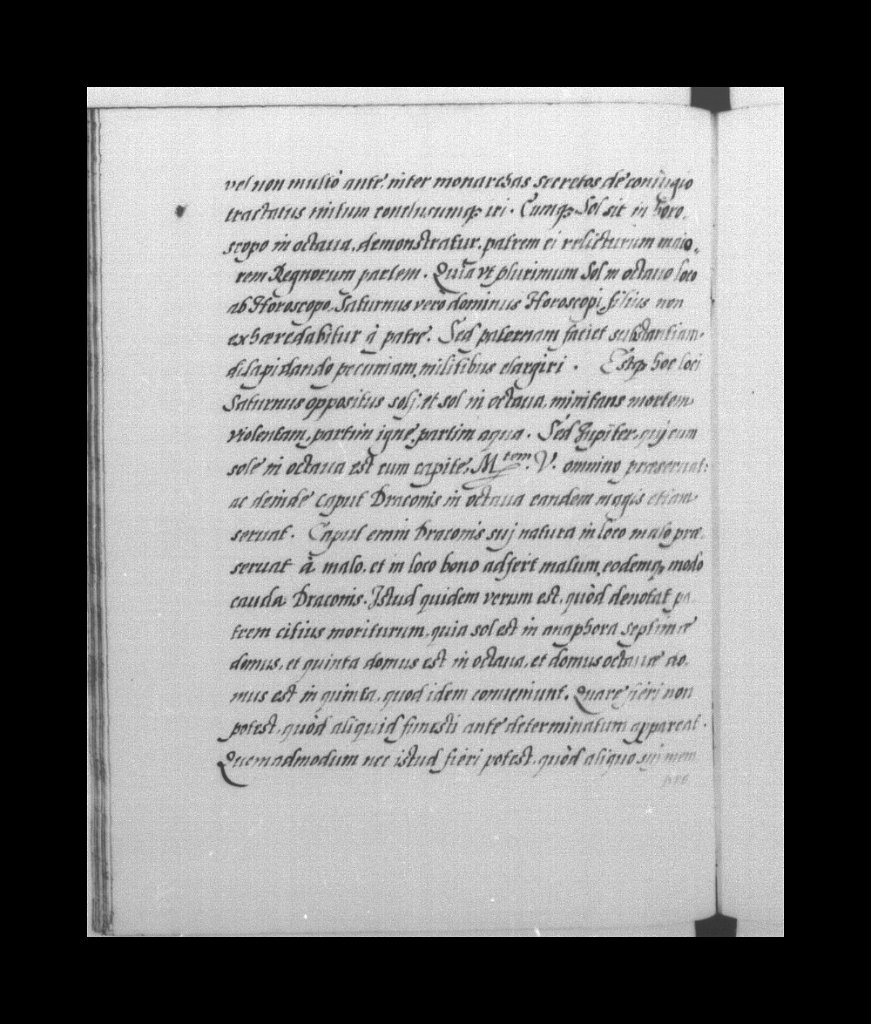 vel non multò ante inter monarchas secretos de coniugio
tractatus initum conclusumq́ iri. Cumq́ Sol sit in horo,
scopo in octaua, demonstratur, patrem ei relicturum maio,
rem Regnorum partem. Quia vt plurimum Sol in octauo loco
ab Horoscopo, Saturnus verò dominus Horoscopi, filius non
exhæredabitur à patre. Sed paternam faciet substantiam
dilapidando pecuniam militibus elargiri. Estq́ hoc loci
Saturnus oppositus solj, et sol in octaua, minitans mortem
violentam, partim igne, partim aqua. Sed Jupiter, quj cum
sole in octaua est cum capite, M.tem V. omnino præseruat:
ac deinde caput Draconis in octaua eandem magis etiam
seruat. Caput enim Draconis suj natura in loco malo præ,
seruat à malo, et in loco bono adfert malum, eodemq́ modo
cauda Draconis. Istud quidem verum est, quòd denotat pa
trem citius moriturum, quia sol est in anaphora septimæ
domus, et quinta domus est in octaua, et domus octauæ do,
mus est in quinta, quod idem conueniunt. Quare fieri non
potest, quòd aliquid funesti ante determinatum appareat.
Quemadmodum nec istud fieri potest, quòd aliquo sui mem
bre